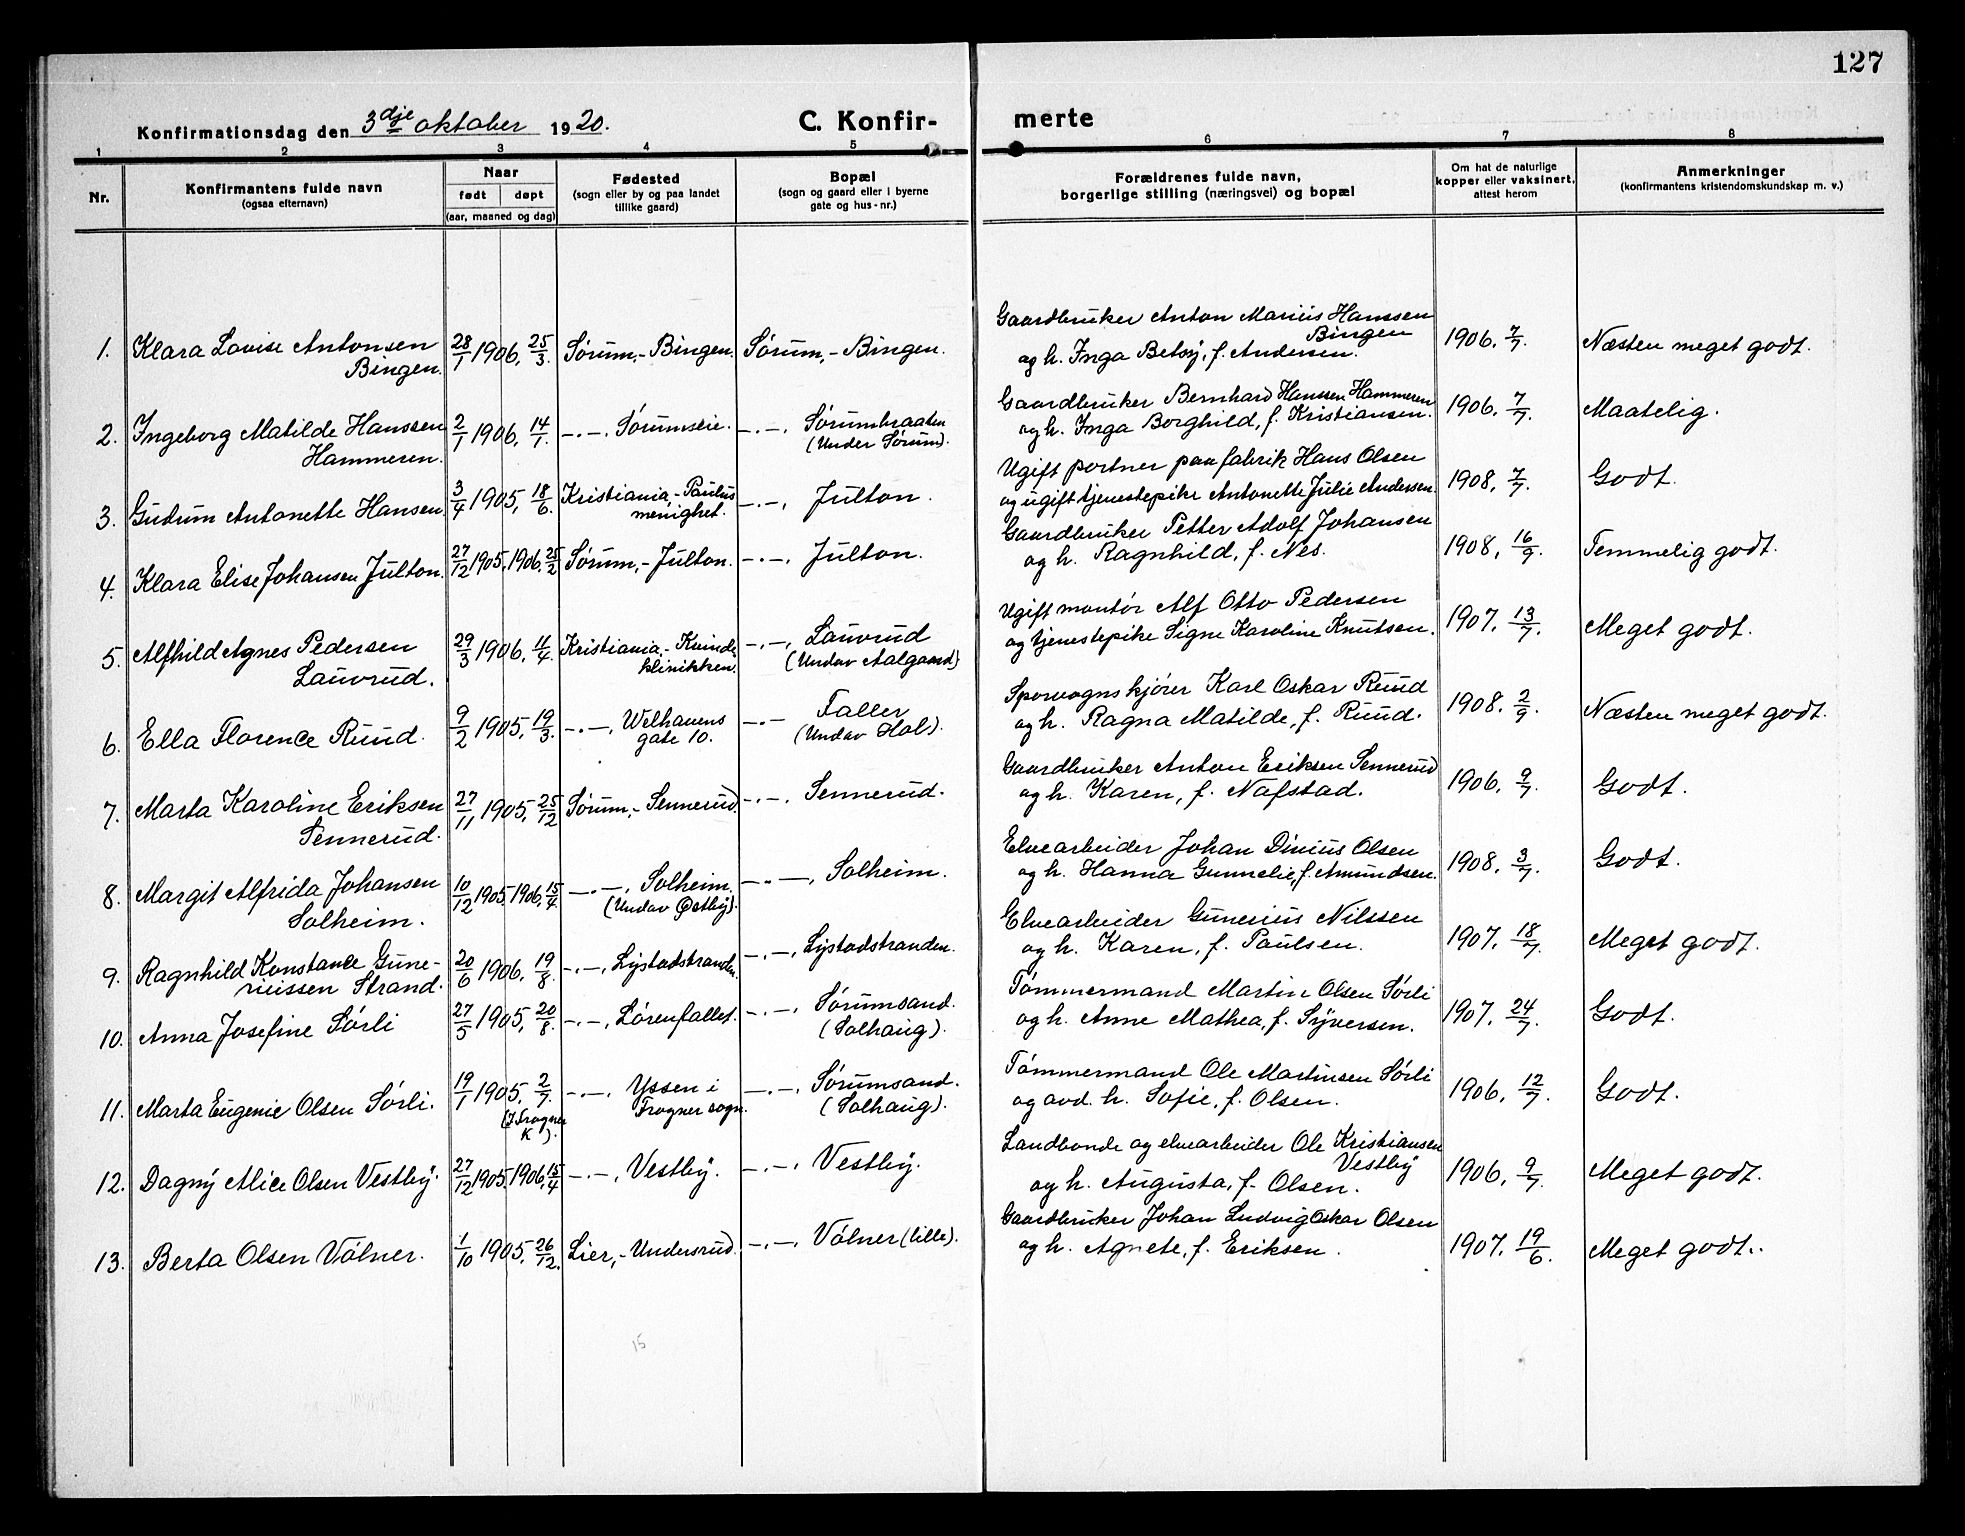 127
Konfirmationsdag den 3dje oktober 1920.
C. Konfir-
merte
1 2 3 4 5 6 7 8
Nr.
Konfirmantens fulde navn
(ogsaa efternavn)
Naar
født døpt
(aar, maaned og dag)
Fødested
(sogn eller by og paa landet
tillike gaard)
Bopæl
(sogn og gaard eller i byerne
gate og hus-nr.)
Forældrenes fulde navn,
borgerlige stilling (næringsvei) og bopæl
Om hat de naturlige
kopper eller vaksinert,
attest herom
Anmerkninger
(konfirmantens kristendomskundskap m. v.)
1. Klara Lovise Antonsen
Bingen.
28/1 1906, 25/3.
Sørum,- Bingen.
Sørum,- Bingen.
Gaardbruker Anton Marius Hanssen
Bingen
og h. Inga Betsy, f. Andersen.
1906, 7/7.
Næsten meget godt.
2. Ingeborg Matilde Hanssen
Hammeren.
2/1 1906, 14/1.
-.-. Sørumseie.
-.-, Sørumbraaten
(Under Sørum).
Gaardbruker Bernhard Hanssen Hammeren
og h. Inga Borghild, f. Kristiansen.
1906, 7/7.
Maatelig.
3. Gudrun Antonette Hansen.
3/4 1905, 18/6.
Kristiania,- Paulus
menighet.
-.-, Julton.
Ugift portner paa fabrik Hans Olsen
og ugift tjenestepike Antonette Julie Andersen.
1908, 7/7.
Godt.
4. Klara Elise Johansen Julton.
27/12 1905, 1906, 25/2
Sørum,- Julton.
-.-, Julton.
Gaardbruker Petter Adolf Johansen
og h. Ragnhild, f. Nes.
1908, 16/9.
Temmelig godt.
5. Alfhild Agnes Pedersen
Lauvrud.
29/3 1906, 11/4.
Kristiania,- Kvinde
klinikken.
-.-, Lauvrud
(Undav Aalgaard)
Ugift montør Alf Otto Pedersen
og tjenestepike Signe Karoline Knutsen.
1907, 13/7.
Meget godt.
6. Ella Florence Ruud.
9/2 1905, 19/3.
-.-, Welhavens
gate 10.
-.- Faller
(Undav Hol).
Sporvognskjører Karl Oskar Ruud
og h. Ragna Matilde, f. Ruud.
1908, 2/9.
Næsten meget godt.
7. Marta Karoline Eriksen
Sennerud.
27/11 1905, 25/12
Sørum,- Sennerud.
-.-, Sennerud.
Gaardbruker Anton Eriksen Sennerud
og h. Karen, f. Nafstad.
1906, 9/7.
Godt.
8. Margit Alfrida Johansen
Solheim.
10/12 1905, 1906, 15/4.
-.-, Solheim.
(Undav Østby).
-.-, Solheim.
Elvearbeider Johan Dinius Olsen
og h. Hanna Gunnelie, f. Amundsen.
1908, 3/7.
Godt.
9. Ragnhild Konstance Gune-
riussen Strand.
20/6 1906, 19/8.
-.-, Lystadstranden.
-.-, Lystadstranden.
Elvearbeider Gunerius Nilssen
og h. Karen, f. Paulsen.
1907, 18/7.
Meget godt.
10. Anna Josefine Sørli
27/5 1905, 20/8.
-.-, Lørenfallet.
-.-, Sørumsand.
(Solhaug).
Tømmermand Martin Olsen Sørli
og h. Anne Mathea, f. Syversen.
1907, 24/7.
Godt.
11. Marta Eugenie Olsen Sørli.
19/1 1905, 2/7.
(I Frogner
K).
-.-, Yssen i
Frogner sogn.
-.-, Sørumsand.
(Solhaug).
Tømmermand Ole Martinsen Sørli
og avd. h. Sofie, f. Olsen.
1906, 12/7.
Godt.
12. Dagny Alice Olsen Vestby.
27/12 1905, 1906, 15/4
-.-, Vestby.
-.-, Vestby.
Landbonde og elvearbeider Ole Kristiansen
Vestby
og h. Augusta, f. Olsen.
1906, 9/7.
Meget godt.
13. Berta Olsen Vølner.
1/10 1905, 26/12.
Lier,- Undersrud.
-.-, Vølner (lille).
Gaardbruker Johan Ludvig Oskar Olsen
og h. Agnete, f. Eriksen.
1907, 19/6.
Meget godt.
15